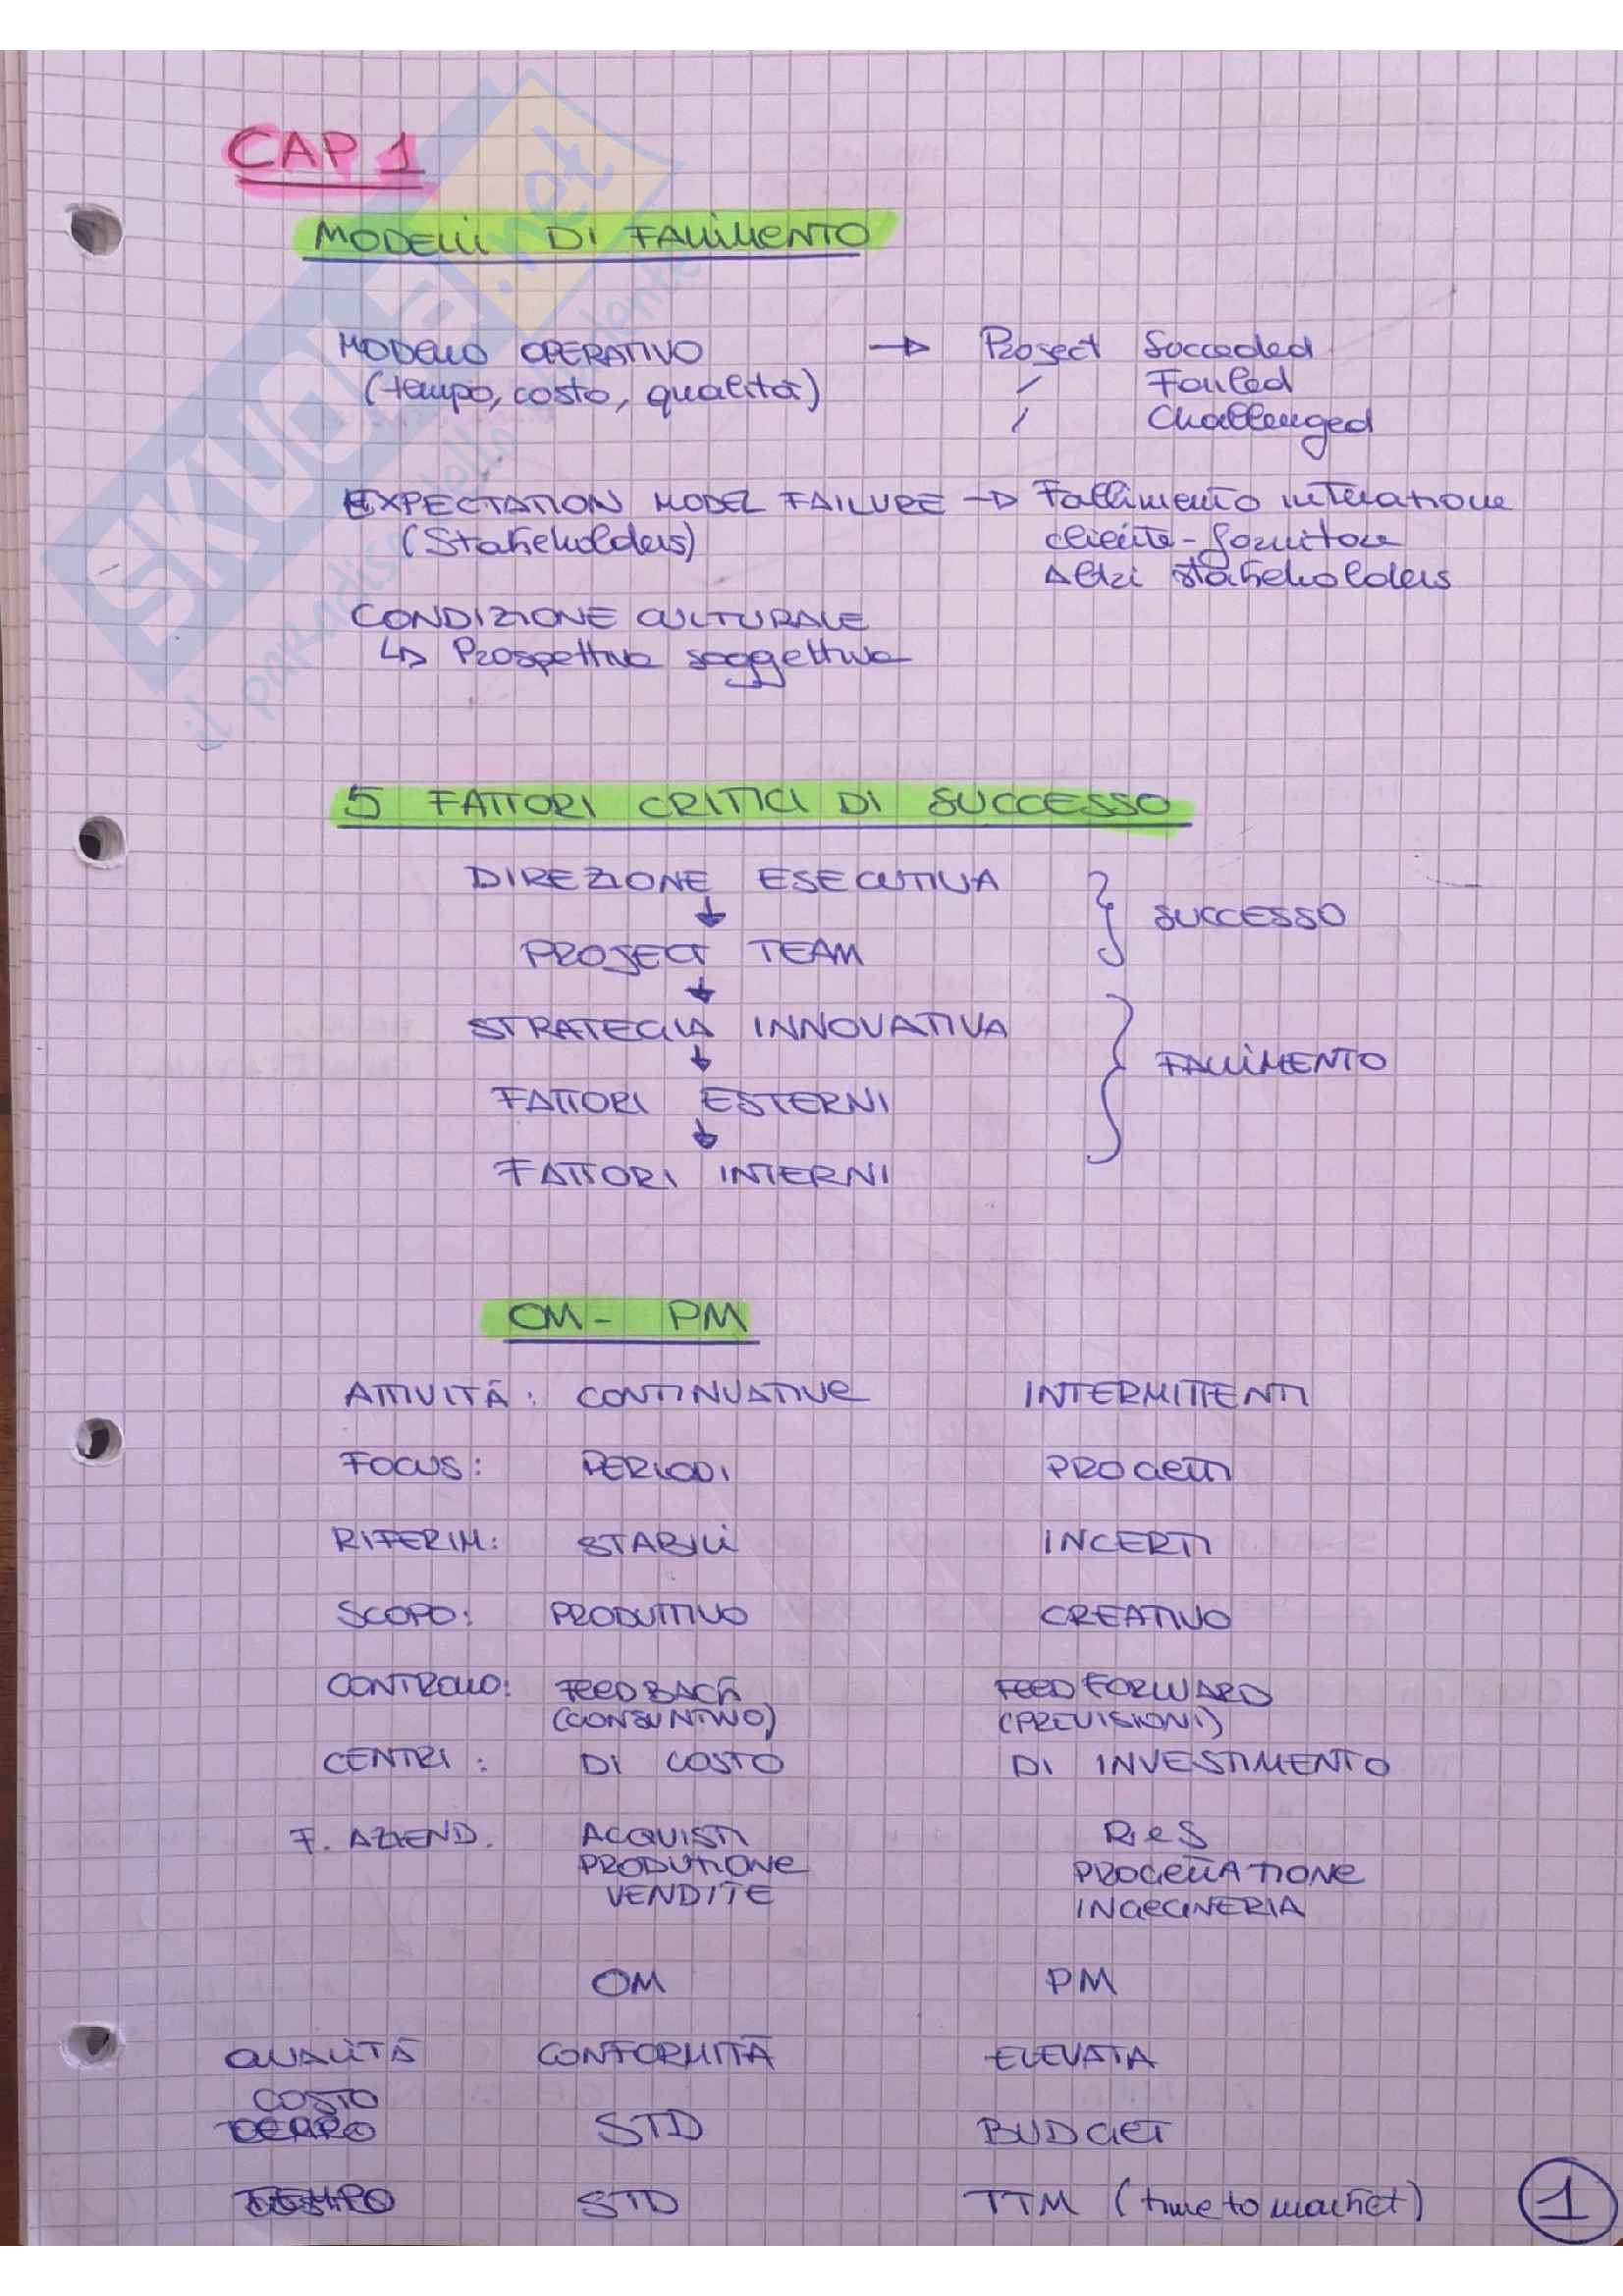 CAP 1
MODELLI DI FALLIMENTO
MODELLO OPERATIVO → Project Succeded
(tempo, costo, qualità) / Failed
/ Challenged
EXPECTATION MODEL FAILURE → Fallimento interazione
(Stakeholders) cliente-fornitore
Altri stakeholders
CONDIZIONE CULTURALE
↳ Prospettiva soggettiva
5 FATTORI CRITICI DI SUCCESSO
DIREZIONE ESECUTIVA } SUCCESSO
↓
PROJECT TEAM
↓
STRATEGIA INNOVATIVA
↓ } FALLIMENTO
FATTORI ESTERNI
↓
FATTORI INTERNI
OM - PM
ATTIVITÀ: CONTINUATIVE INTERMITTENTI
FOCUS: PERIODI PROGETTI
RIFERIM: STABILI INCERTI
SCOPO: PRODUTTIVO CREATIVO
CONTROLLO: FEEDBACK FEEDFORWARD
(CONSUNTIVO) (PREVISIONI)
CENTRI: DI COSTO DI INVESTIMENTO
F. AZIEND. ACQUISTI R e S
PRODUZIONE PROGETTAZIONE
VENDITE INGEGNERIA
OM PM
QUALITÀ CONFORMITÀ ELEVATA
COSTO
STD BUDGET
TEMPO STD TTM (time to market)
1
SKUOLA.net
il paradiso dello studente